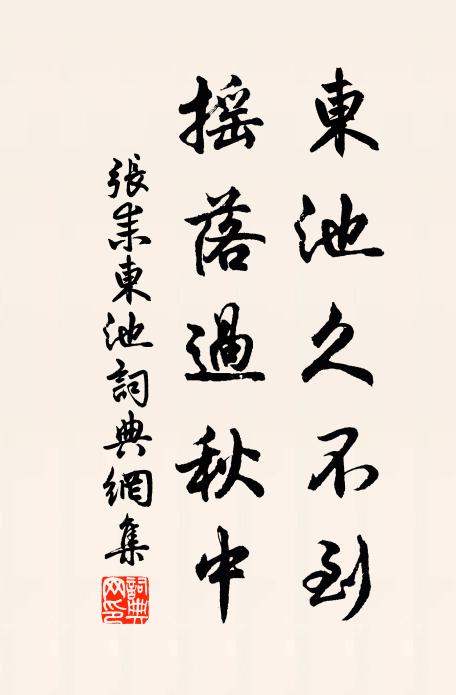 東池久不到
搖落過秋中
張耒東池詞典網集
詞典網印